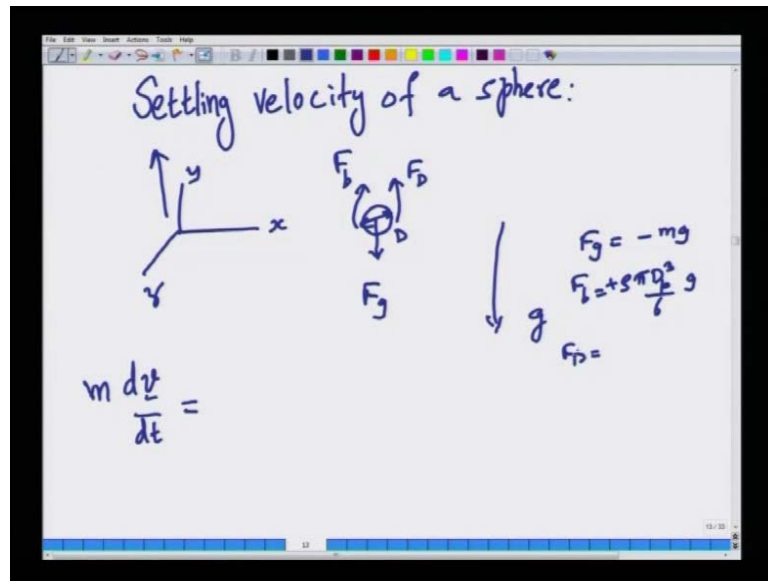 File Edit View Insert Actions Tools Help
Settling velocity of a sphere:
y
x
z
F_b
F_D
D
F_g
g
F_g = - mg
F_b = + ρ π D_p^3 / 6 g
F_D =
m dv/dt =
13
13/33